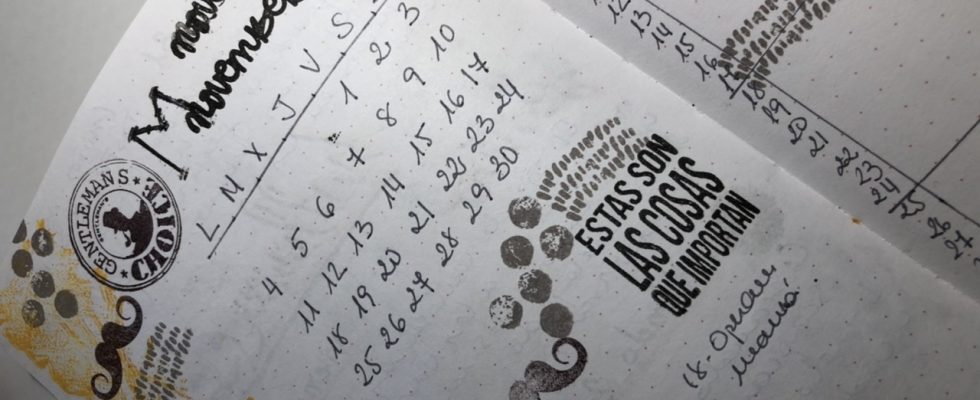 Movember
L M X J V S
1 2 3
4 5 6 7 8 9 10
11 12 13 14 15 16 17
18 19 20 21 22 23 24
25 26 27 28 29 30
GENTLEMAN'S
CHOICE
ESTAS SON
LAS COSAS
QUE IMPORTAN
18-
mamá
12
13
14
15
16
17
18
19
20
21
22
23
24
25
26
27